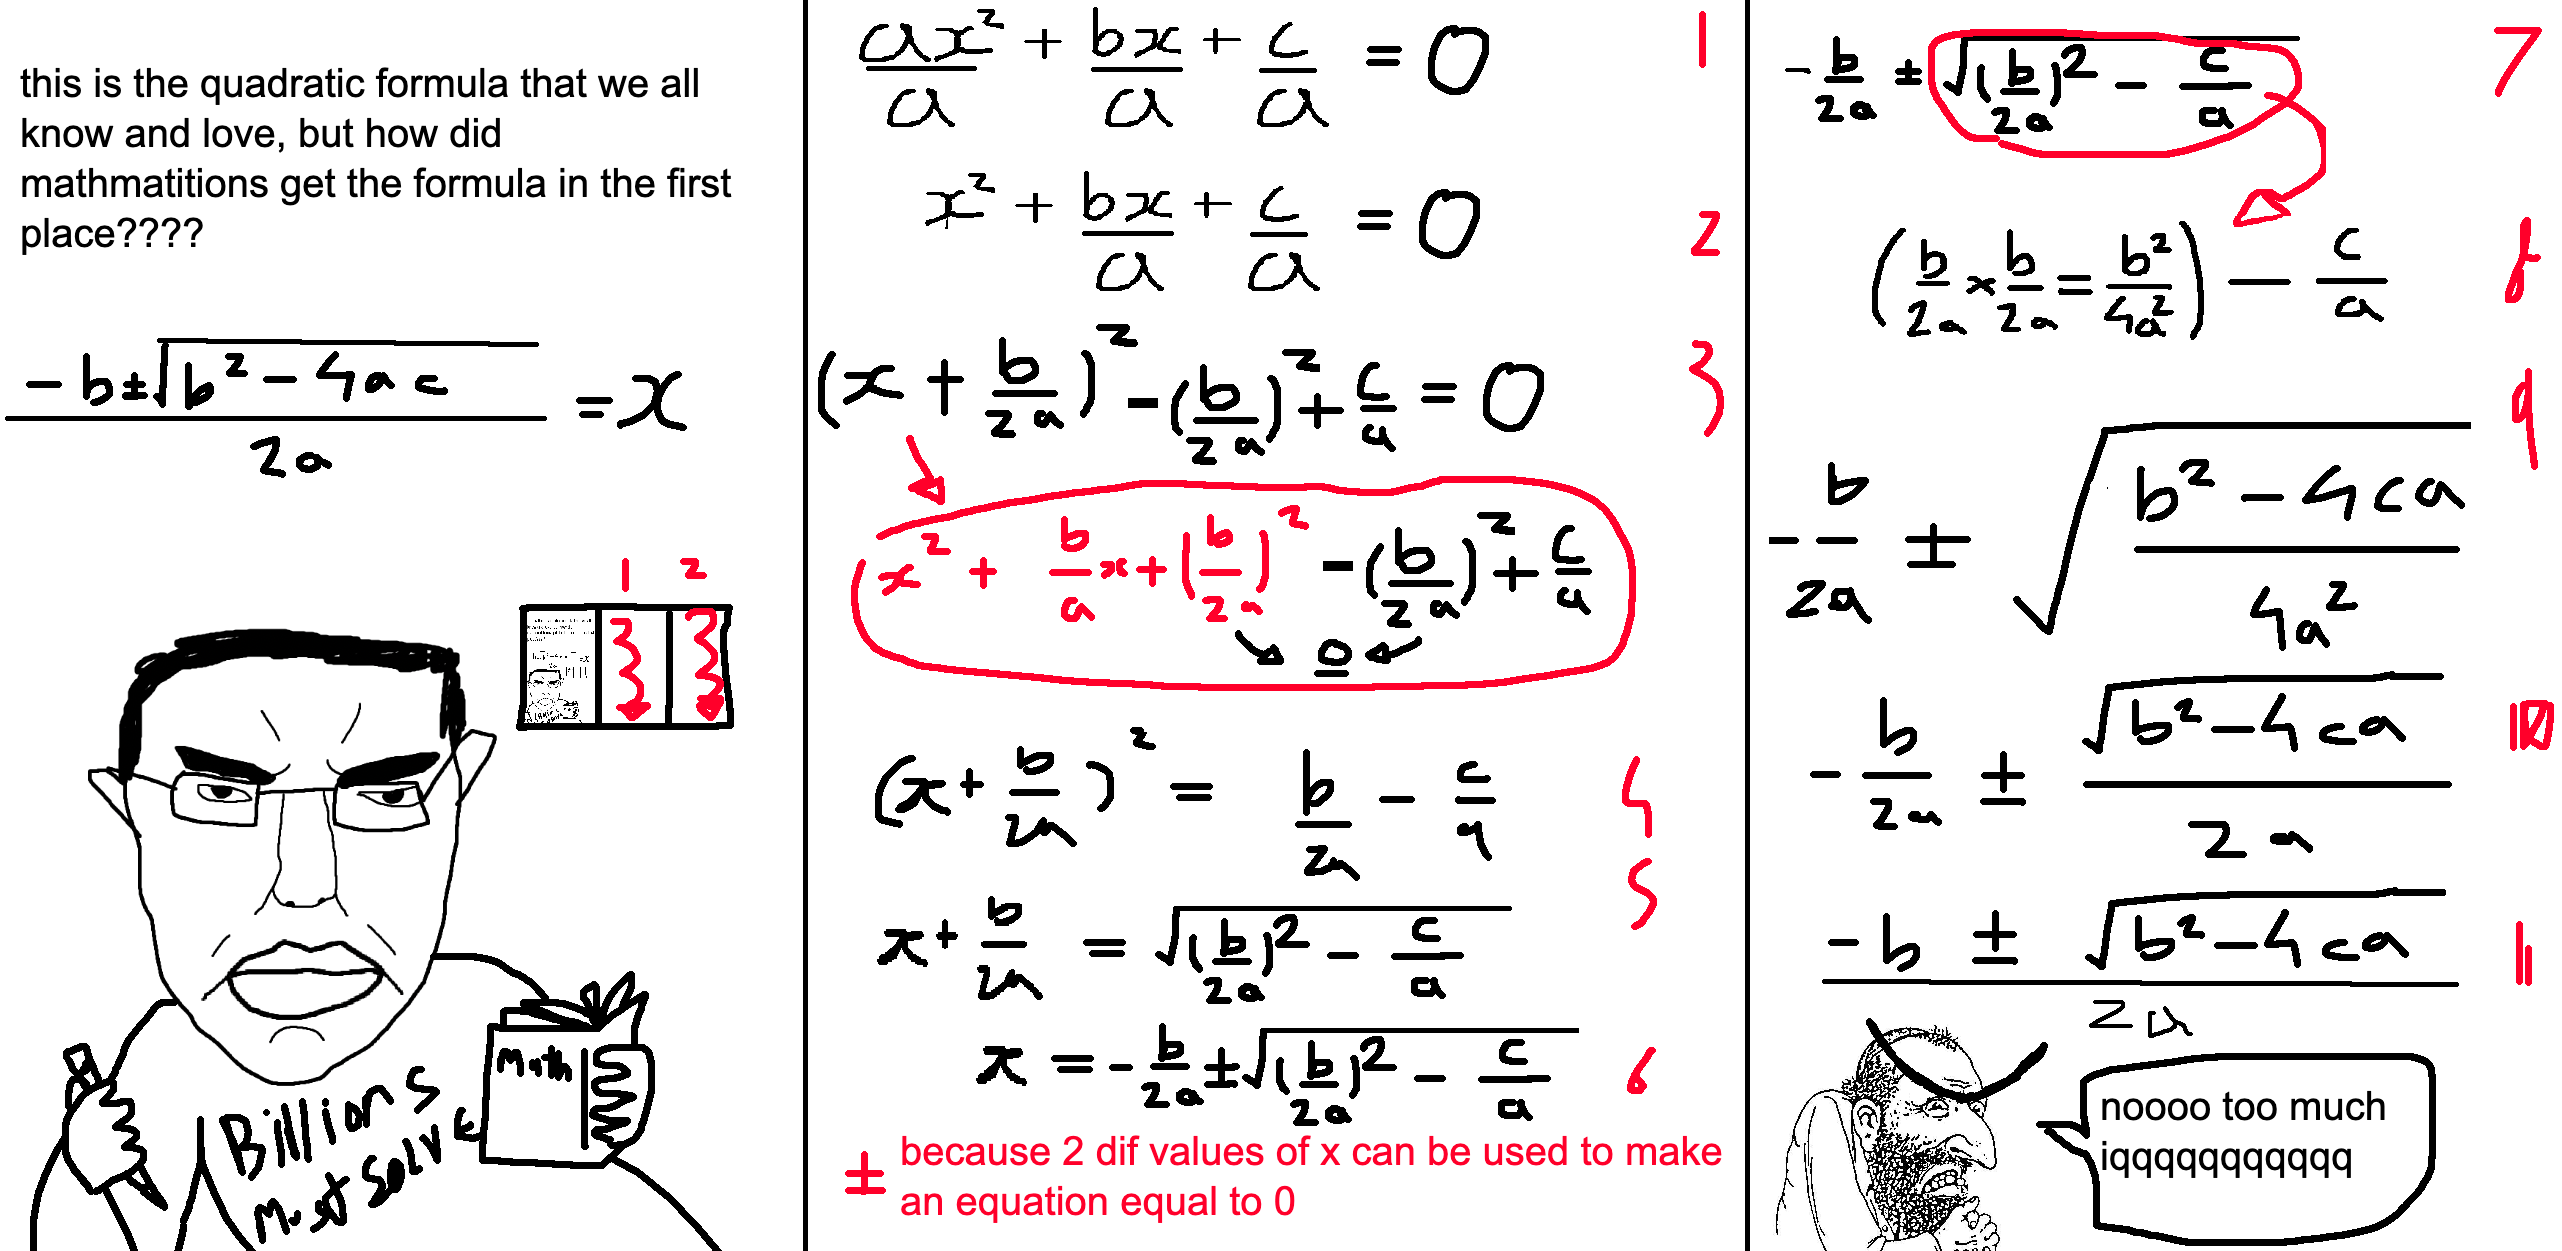 this is the quadratic formula that we all
know and love, but how did
mathmatitions get the formula in the first
place????
-b±√(b² - 4ac) / 2a = x
1 2
Math
Billions
must solve
ax²/a + bx/a + c/a = 0 1
x² + bx/a + c/a = 0 2
(x + b/2a)² - (b/2a)² + c/a = 0 3
x² + b/a x + (b/2a)² - (b/2a)² + c/a
0
(x + b/2a)² = b/2a - c/a 4
x + b/2a = √((b/2a)² - c/a) 5
x = -b/2a ± √((b/2a)² - c/a) 6
± because 2 dif values of x can be used to make
an equation equal to 0
-b/2a ± √((b/2a)² - c/a) 7
(b/2a × b/2a = b²/4a²) - c/a 8
9
-b/2a ± √((b² - 4ca)/4a²)
-b/2a ± √(b² - 4ca)/2a 10
-b ± √(b² - 4ca) / 2a 11
noooo too much
iqqqqqqqqqqq